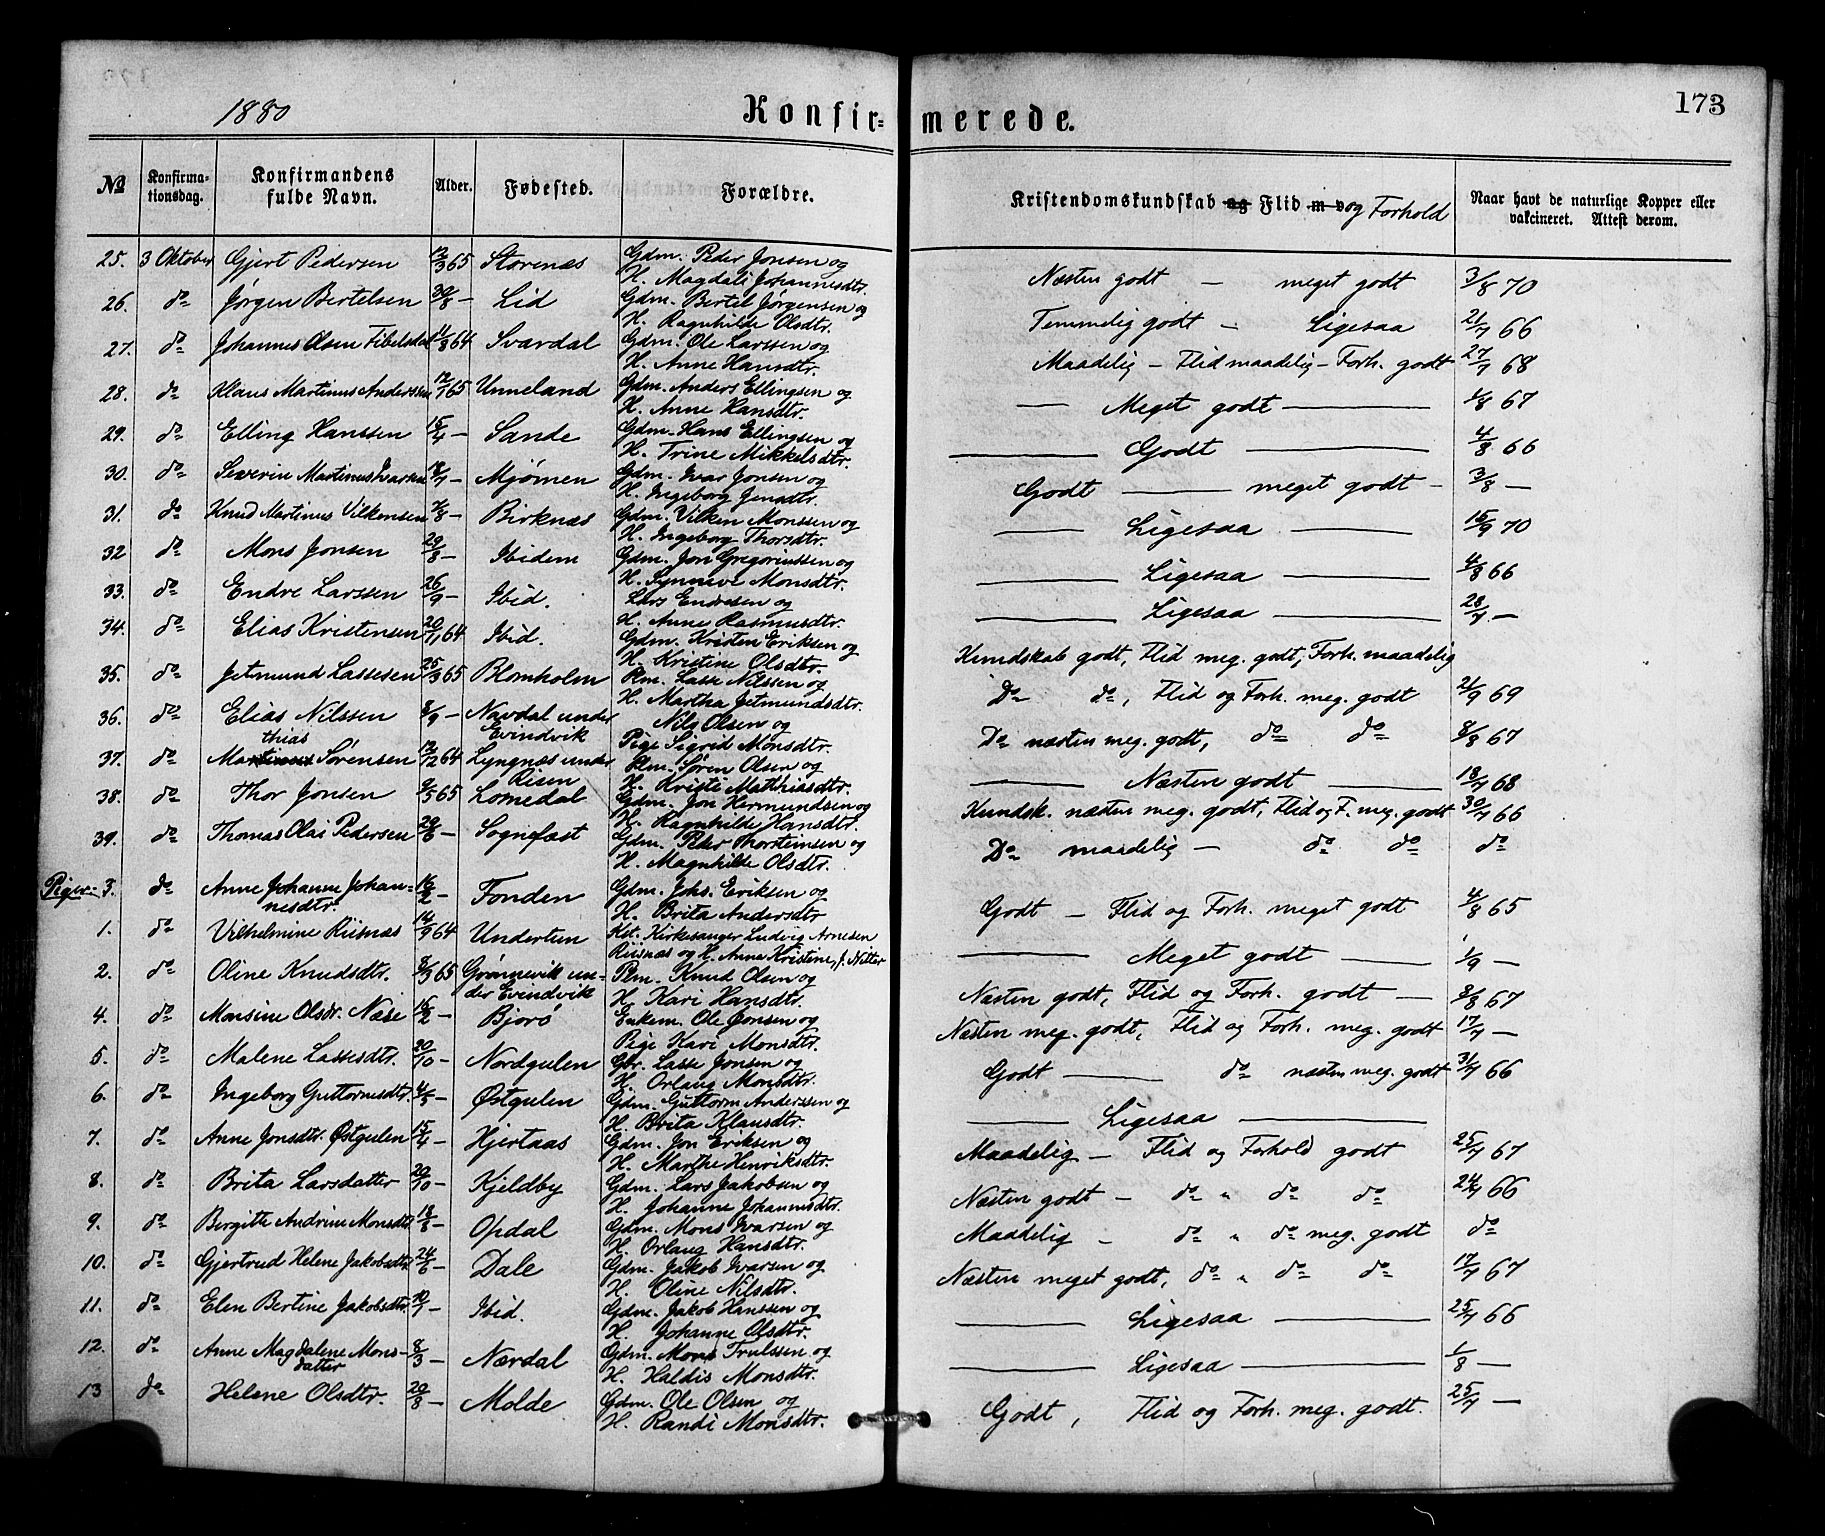 1880 Konfir= merede. 173
№ Konfirma-tionsdag. Konfirmandens fulde Navn. Alder. Fødested. Forældre. Kristendomskundskab og Flid m v og Forhold Naar havt de naturlige Kopper eller vakcineret. Attest derom.
25. 3 Oktober Gjert Pedersen 12/3 65 Storenæs Gdm. Peder Jonsen og
H. Magdali Johannesdtr. Næsten godt — meget godt 3/8 70
26. do Jørgen Bertelsen 30/8 — Lid Gdm. Bertel Jørgensen og
H. Ragnhilde Olsdtr. Temmelig godt — Ligesaa 21/7 66
27. do Johannes Olsen Tibelsdal 11/8 64 Svardal Gdm. Ole Larssen og
H. Anne Hansdtr. Maadelig — Flid maadelig — Forh. godt 27/7 68
28. do Klaus Martinus Anderssen 12/1 65 Unneland Gdm. Anders Ellingsen og
H. Anne Hansdtr. — Meget godt — 1/8 67
29. do Elling Hanssen 15/4 — Sande Gdm. Hans Ellingsen og
H. Trine Mikkelsdtr. — Godt — 4/8 66
30. do Severin Martinus Ivarsen 18/7 — Mjømen Gdm. Ivar Jonsen og
H. Ingeborg Jensdtr. Godt — meget godt — 3/8 —
31. do Knud Martinus Vilkensen 7/8 — Birknæs Gdm. Vilken Monssen og
H. Ingeborg Thorsdtr. — Ligesaa — 15/9 70
32 do Mons Jonsen 29/8 — Ibidem Gdm. Jon Gregoriussen og
H. Synneve Monsdtr. — Ligesaa — 4/8 66
33. do Endre Larssen 26/9 — Ibid. Lars Endresen og
H. Anne Rasmusdtr. — Ligesaa — 28/7 —
34. do Elias Kristensen 20/11 64 Ibid. Gdm. Kristen Eriksen og
H. Kristine Olsdtr. Kundskab godt, Flid meg. godt, Forh. maadelig
35. do Jetmund Lassesen 25/3 65 Blomholm Plm. Lasse Nilssen og
H. Martha Jetmundsdtr. Do do, Flid og Forh. meg. godt 21/9 69
36. do Elias Nilssen 8/9 — Navdal under Nils Olsen og
Evindvik Pige Sigrid Monsdtr. Do næsten meg. godt, do do 8/8 67
thias
37. do Martinus Sørensen 12/12 64 Lyngnæs under Plm. Søren Olsen og
Risen H. Kristi Matthiasdtr. — Næsten godt — 18/7 68
38. do Thor Jonsen 9/5 65 Lomedal Gdm. Jon Hermundsen og
H. Ragnhilde Hansdtr. Kundsk. næsten meg. godt, Flid og F. meg. godt 30/7 66
39. do Thomas Olai Pedersen 29/6 — Sognefæst Gdm. Peder Thorsteinsen og
H. Magnhilde Olsdtr. Do maadelig — do do do
Piger: 3. do Anne Johanne Johan- 16/2 — Fonden Gdm. Johs. Eriksen og
nesdtr. H. Brita Andersdtr Godt — Flid og Forh. meget godt 4/8 65
1. do Vilhelmine Riisnæs 14/9 64 Undertun Kst. Kirkesanger Ludvig Arnesen
Riisnæs og H. Anne Kristine, f. Nitter — Meget godt — 1/9 —
2. do Oline Knudsdtr. 8/3 65 Grønnevik un- Plm. Knud Olsen og
der Evindvik H. Kari Hansdtr. Næsten godt, Flid og Forh. godt — 8/8 67
4. do Monsine Olsdr. Næse 16/2 — Bjorø Enkem. Ole Jonsen og
Pige Kari Monsdtr. Næsten meg. godt, Flid og Forh. meg. godt 17/7 —
5. do Malene Lassesdtr. 20/10 — Nordgulen Gbr. Lasse Jonsen og
H. Orlaug Monsdtr. Godt — do næsten meg. godt 31/7 66
6. do Ingeborg Guttormsdtr. 4/5 — Østgulen Gdm. Guttorm Anderssen og
H. Brita Klausdtr. — Ligesaa —
7. do Anne Jonsdtr. Østgulen 15/4 — Hjertaas Gdm. Jon Eriksen og
H. Marthe Henriksdtr. Maadelig — Flid og Forhold godt 25/7 67
8. do Brita Larsdatter 20/10 — Kjeldby Gdm. Lars Jakobsen og
H. Johanne Johannesdtr. Næsten godt — do " do do 24/7 66
9. do Bergitte Andrine Monsdtr. 18/8 — Opdal Gdm. Mons Ivarsen og
H. Orlaug Hansdtr. Maadelig — do " do meg. godt do
10. do Gjertrud Helene Jakobsdtr 24/6 — Dale Gdm. Jakob Ivarsen og
H. Oline Nilsdtr. Næsten meget godt, do " do do 17/7 67
11. do Elen Bertine Jakobsdtr. 10/7 — Ibid. Gdm. Jakob Hanssen og
H. Johanne Olsdtr. — Ligesaa — 25/7 66
12. do Anne Magdalene Mons- 8/3 — Nærdal Gdm. Mons Trulssen og
datter H. Haldis Monsdtr. — Ligesaa — 1/8 —
13 do Helene Olsdtr. 20/8 — Molde Gdm. Ole Olsen og
H. Randi Monsdtr. Godt, Flid og Forh. meg. godt. 25/7 —